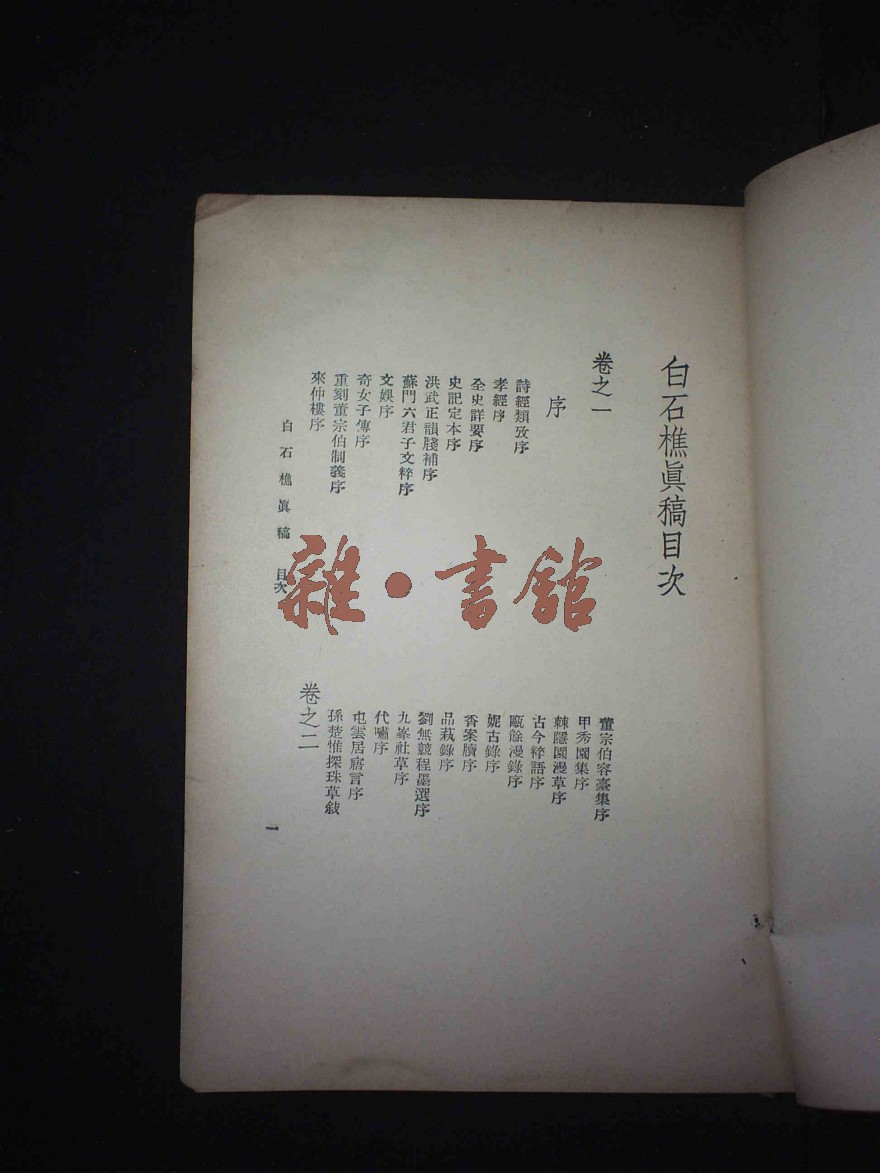 白石樵眞稿目次
卷之一
序
詩經類攷序
孝經序
全史詳要序
史記定本序
洪武正韻牋補序
蘇門六君子文粹序
文娛序
奇女子傳序
重刻董宗伯制義序
來仲樓序
董宗伯容臺集序
甲秀園集序
棘隱園漫草序
古今粹語序
甌餘漫錄序
妮古錄序
香案牘序
品茶錄序
劉無競程墨選序
九峯社草序
代嘯序
屯雲居寤言序
孫楚惟探珠草敍
卷之二
白石樵眞稿 目次
一
雜·書館